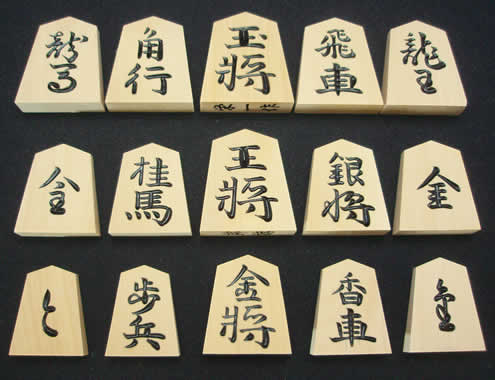 龍馬
角行
玉將
飛車
龍王
全
桂馬
王將
銀將
金
と
歩兵
金將
香車